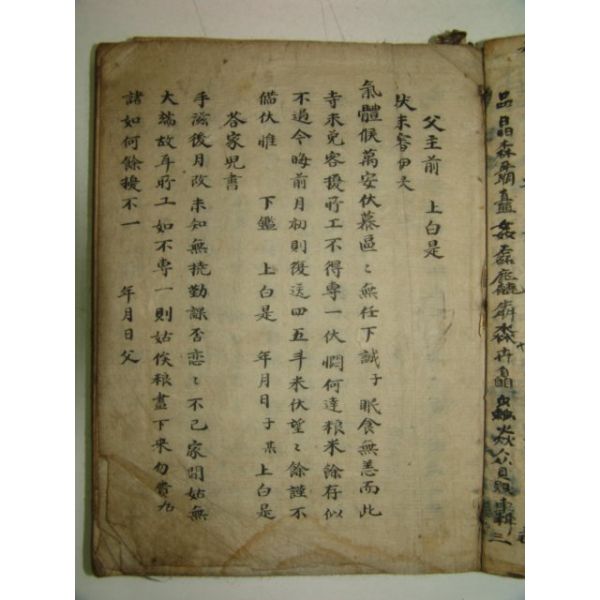 品晶森矗姦磊焱众轟
父主前 上白是
伏未審
氣體候萬安伏慕區〻無任下誠子眠食無恙而此
寺來免客擾所工不得專一伏憫何達粮米餘存似
不過今晦前月初則復送四五斗米伏望〻餘謹不
備伏惟 下鑑 上白是 年月日子某上白是
答家兒書
手滋後月改未知無撓勤課否恋〻不已家間姑無
大端故耳所工如不專一則姑俟粮盡下來勿費
諸如何餘擾不一 年月日父